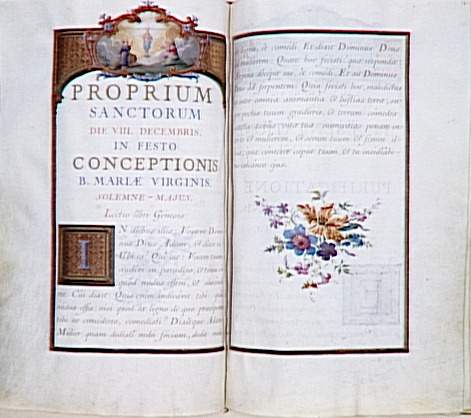 PROPRIUM
SANCTORUM
DIE VIII. DECEMBRIS.
IN FESTO
CONCEPTIONIS
B. MARIÆ VIRGINIS.
SOLEMNE-MAJUS.
Lectio libri Genesis.
IN diebus illis; Vocavit Domi
nus Deus Adam, et dixit
Ubi es? Qui ait: Vocem tuam
audivi in paradiso, et timui
quod nudus essem, et
me. Cui dixit: Quis enim indicavit tibi quod
nudus esses, nisi quod de ligno de quo præceperam
tibi ne comederes, comedisti? Dixitque Adam
Mulier quam dedisti mihi sociam, dedit mihi
et comedi. Et dixit Dominus Deus
ad mulierem: Quare hoc fecisti? quæ respondit:
Serpens decepit me, et comedi. Et ait Dominus
Deus ad serpentem: Quia fecisti hoc, maledictus
es inter omnia animantia et bestias terræ, su-
per pectus tuum gradieris, et terram comedes
cunctis diebus vitæ tuæ: inimicitias ponam in-
ter et mulierem, et semen tuum et semen il-
lius; ipsa conteret caput tuum, et tu insidiabe-
ris calcaneo ejus.